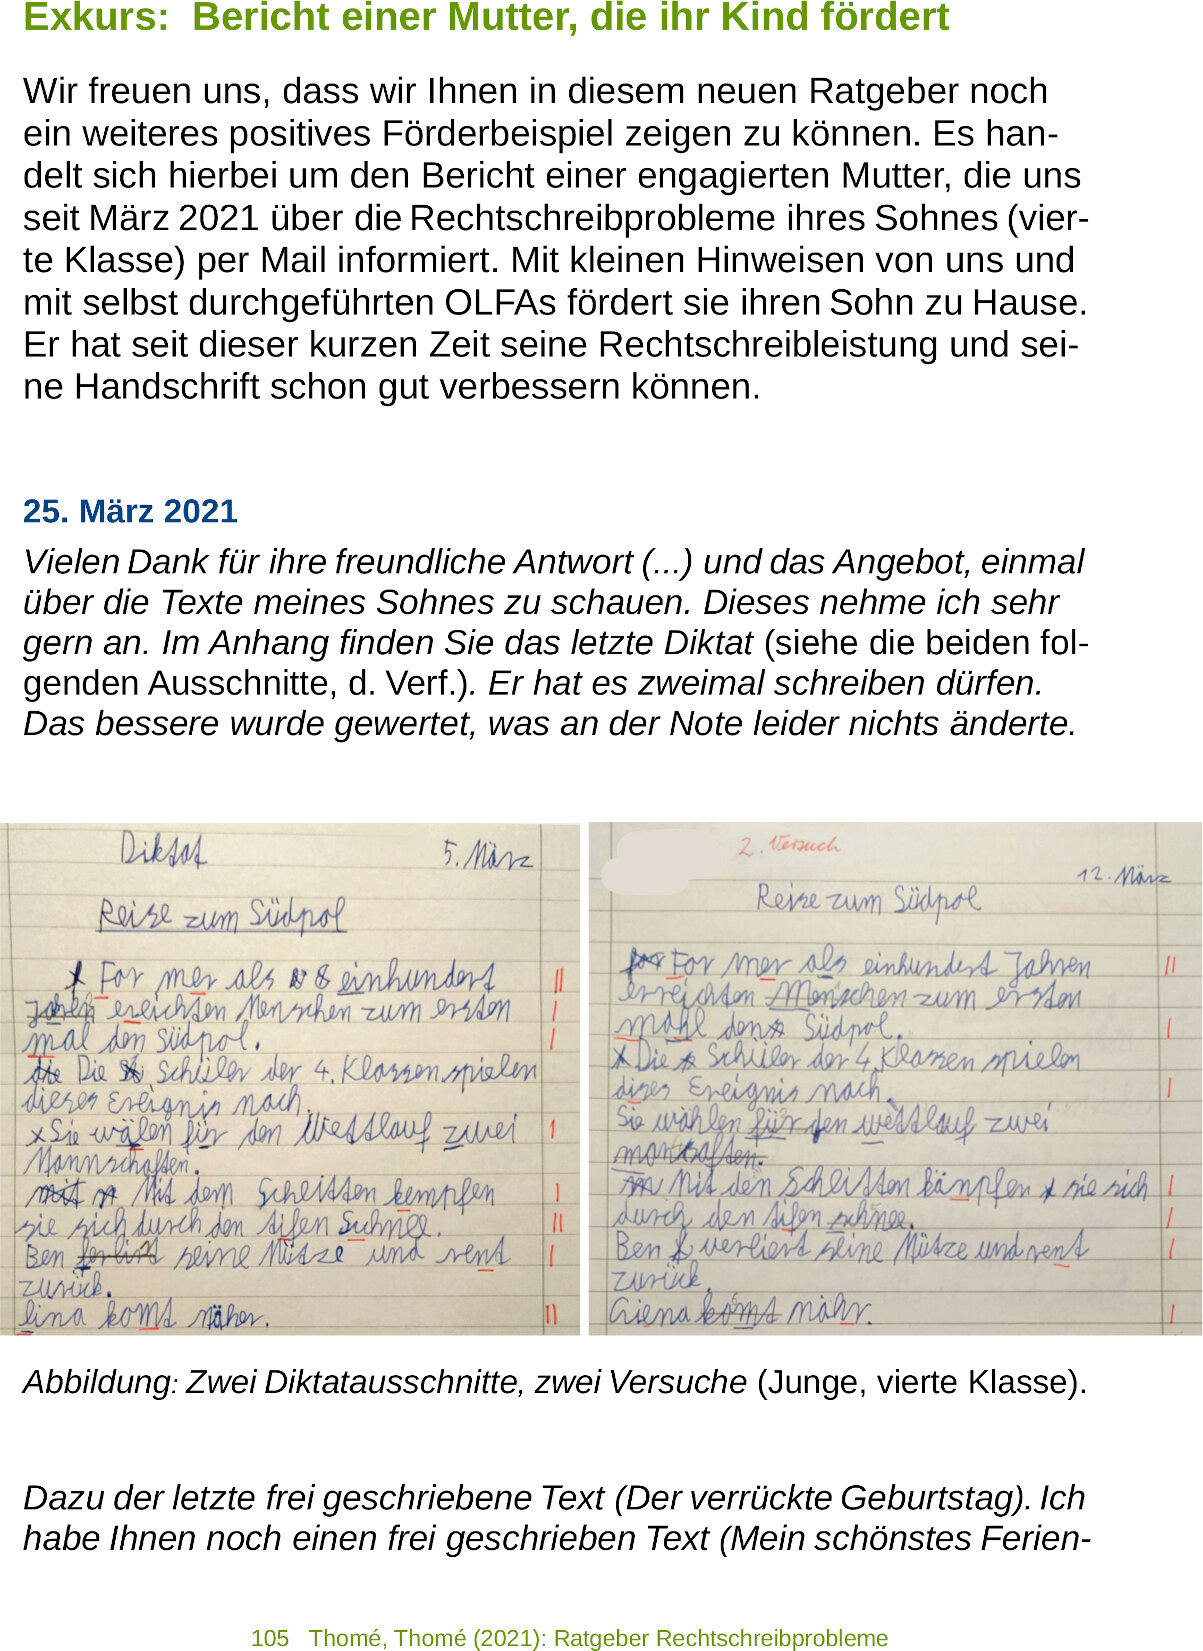 Exkurs:  Bericht einer Mutter, die ihr Kind fördert
Wir freuen uns, dass wir Ihnen in diesem neuen Ratgeber noch
ein weiteres positives Förderbeispiel zeigen zu können. Es han-
delt sich hierbei um den Bericht einer engagierten Mutter, die uns
seit März 2021 über die Rechtschreibprobleme ihres Sohnes (vier-
te Klasse) per Mail informiert. Mit kleinen Hinweisen von uns und
mit selbst durchgeführten OLFAs fördert sie ihren Sohn zu Hause.
Er hat seit dieser kurzen Zeit seine Rechtschreibleistung und sei-
ne Handschrift schon gut verbessern können.
25. März 2021
Vielen Dank für ihre freundliche Antwort (...) und das Angebot, einmal
über die Texte meines Sohnes zu schauen. Dieses nehme ich sehr
gern an. Im Anhang finden Sie das letzte Diktat (siehe die beiden fol-
genden Ausschnitte, d. Verf.). Er hat es zweimal schreiben dürfen.
Das bessere wurde gewertet, was an der Note leider nichts änderte.
Diktat 5. März
Reise zum Südpol
For mer als einhundert
Jahren ereichten Menschen zum ersten
mal den Südpol.
Die Schüler der 4. Klassen spielen
dieses Ereignis nach.
Sie wälen für den Wettlauf zwei
Mannschaften.
Mit dem Schlitten kempfen
sie sich durch den tifen Schnee.
Ben seine Mütze und rent
zurück.
lina komt näher.
2. Versuch
12. März
Reise zum Südpol
For mer als einhundert Jahren
erreichten Menschen zum ersten
mahl den Südpol.
Die Schüler der 4. Klassen spielen
dises Ereignis nach.
Sie wählen für den wettlauf zwei
Mit den Schlitten kämpfen sie sich
durch den tifen schnee.
Ben verliert seine Mütze und rent
zurück.
komt nähr.
Abbildung: Zwei Diktatausschnitte, zwei Versuche (Junge, vierte Klasse).
Dazu der letzte frei geschriebene Text (Der verrückte Geburtstag). Ich
habe Ihnen noch einen frei geschrieben Text (Mein schönstes Ferien-
105   Thomé, Thomé (2021): Ratgeber Rechtschreibprobleme